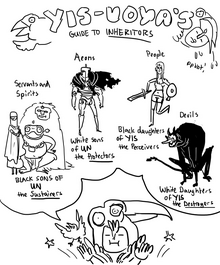 YIS-UOYA'S
GUIDE TO INHERITORS
Aeons
People
Servants and
Spirits
White sons
of UN
the Protectors
Black daughters
of YIS
the Perceivers
Devils
BLACK SONS OF
UN
the Sustainers
White Daughters
of YIS
the Destroyers